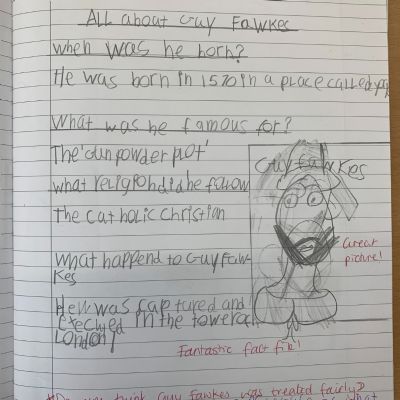 All about Guy Fawkes
when was he born?
He was born in 1570 in a place called
What was he famous for?
The 'Gun powder plot'
Guy Fawkes
what religion did he follow
The catholic christian
Great
picture!
What happend to Guy Faw-
kes
He was captured and
in the tower of
London
Fantastic fact file!
Do you think Guy Fawkes was treated fairly?
what